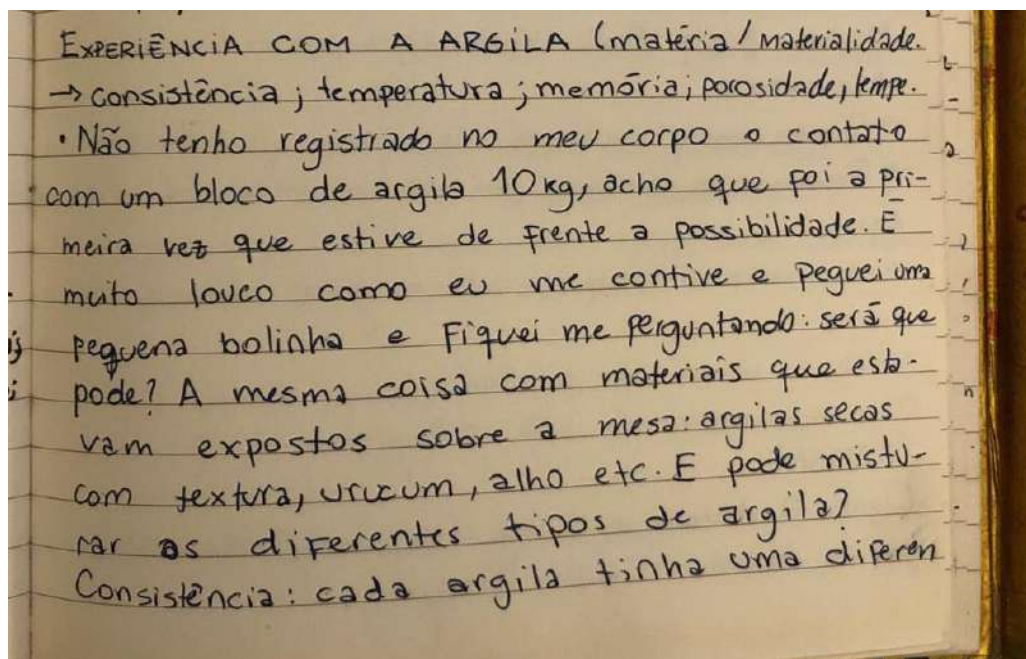 EXPERIÊNCIA COM A ARGILA (matéria/materialidade.
→ consistência; temperatura; memória; porosidade, tempe.
• Não tenho registrado no meu corpo o contato
com um bloco de argila 10kg, acho que foi a pri-
meira vez que estive de frente a possibilidade. É
muito louco como eu me contive e peguei uma
pequena bolinha e Fiquei me perguntando: será que
pode? A mesma coisa com materiais que esta-
vam expostos sobre a mesa: argilas secas
com textura, urucum, alho etc. E pode mistu-
rar as diferentes tipos de argila?
Consistência: cada argila tinha uma diferen